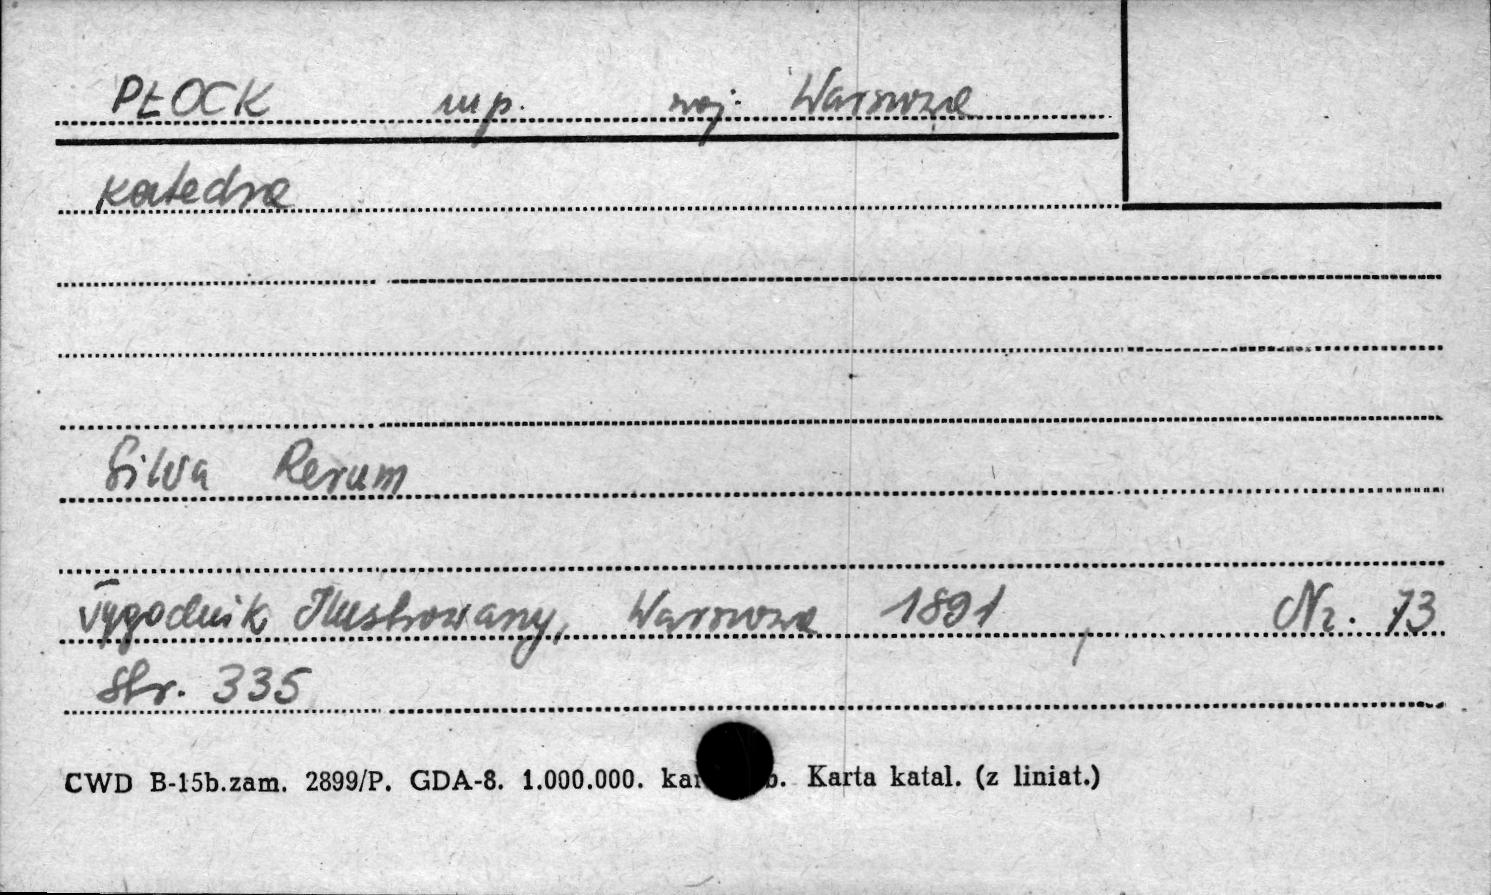 PŁOCK mp. woj: Warszwa
Katedra
Silva Rerum
Tygodnik Ilustrowany, Warszawa 1891, Nr. 73
Str. 335
CWD B-15b.zam. 2899/P. GDA-8. 1.000.000. kar b. Karta katal. (z liniat.)